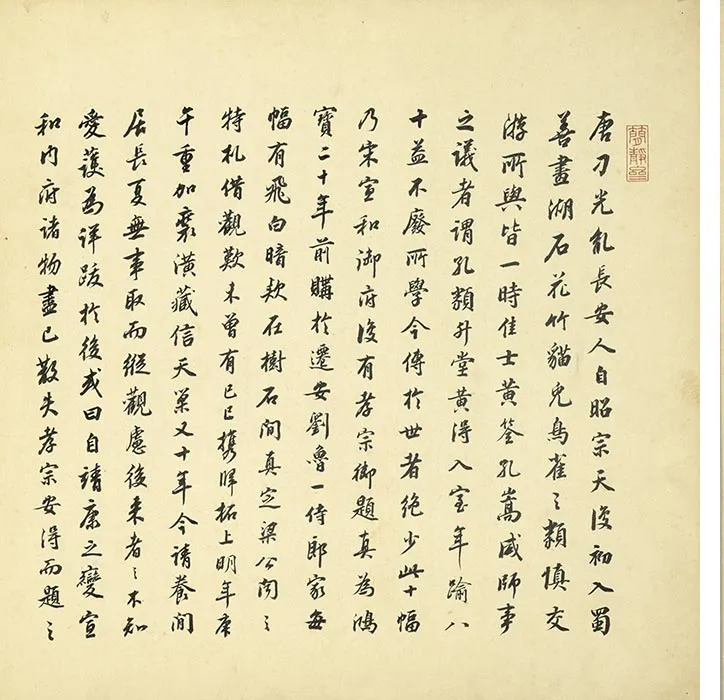 唐刁光胤長安人自昭宗天復初入蜀
善畫湖石花竹貓兔鳥雀之類慎交
游所與皆一時佳士黃筌孔嵩咸師事
之議者謂孔類升堂黃得入室年踰八
十益不廢所學今傳於世者絕少此十幅
乃宋宣和御府後有孝宗御題真為鴻
寶二十年前購於遷安劉魯一侍郎家每
幅有飛白暗款在樹石間真定梁公聞之
特札借觀歎未曾有己巳攜歸柘上明年庚
午重加裝潢藏信天巢又十年今請養閒
居長夏無事取而縱觀慮後來者之不知
愛護為詳跋於後或曰自靖康之變宣
和內府諸物盡已散失孝宗安得而題之